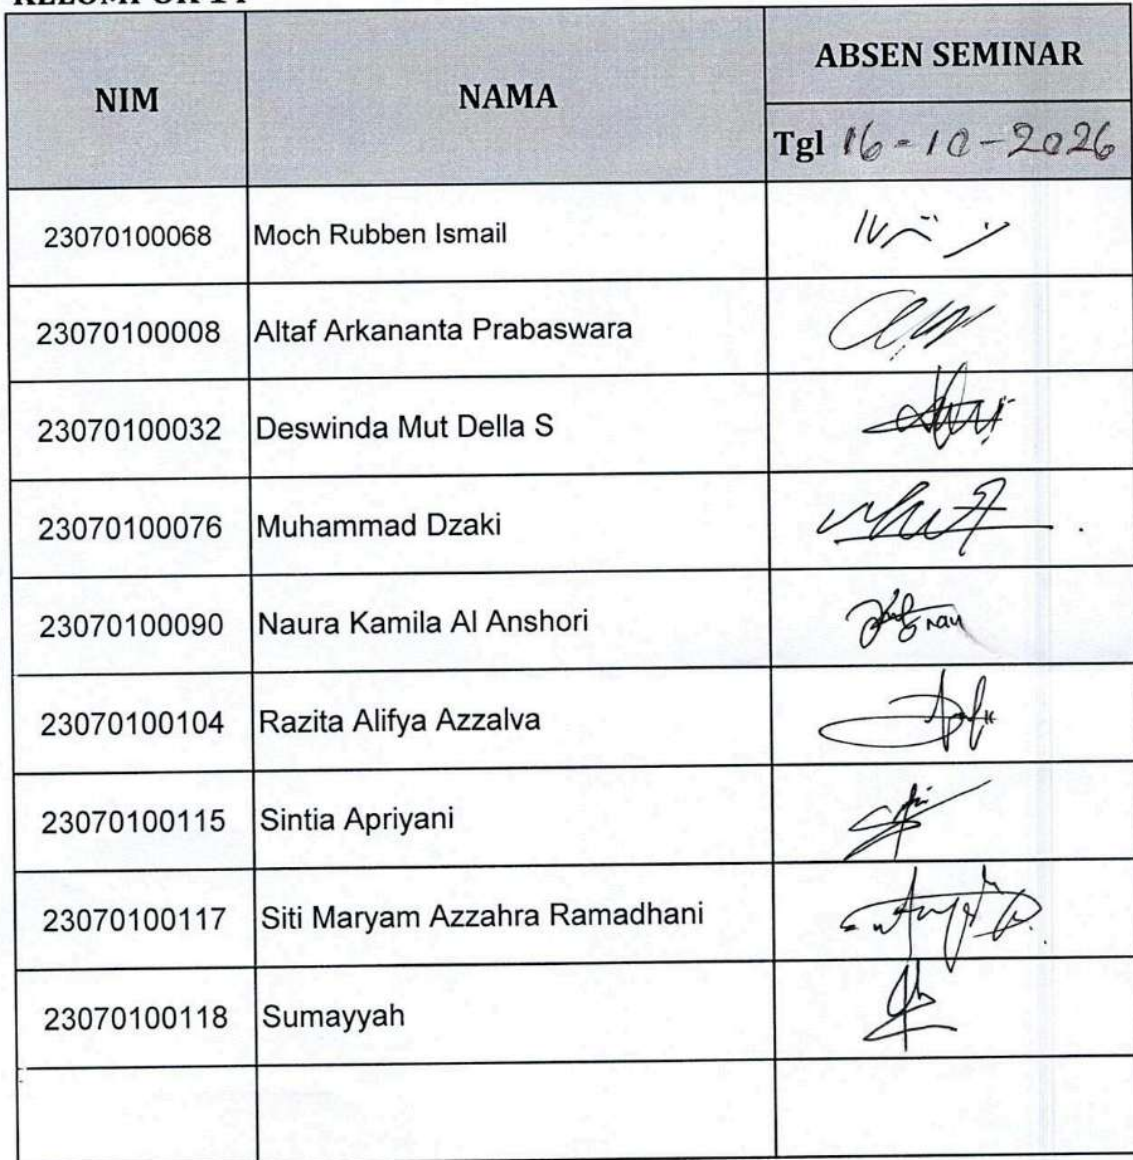 NIM NAMA ABSEN SEMINAR
Tgl 16-10-2026
23070100068 Moch Rubben Ismail
23070100008 Altaf Arkananta Prabaswara
23070100032 Deswinda Mut Della S
23070100076 Muhammad Dzaki
23070100090 Naura Kamila Al Anshori
23070100104 Razita Alifya Azzalva
23070100115 Sintia Apriyani
23070100117 Siti Maryam Azzahra Ramadhani
23070100118 Sumayyah